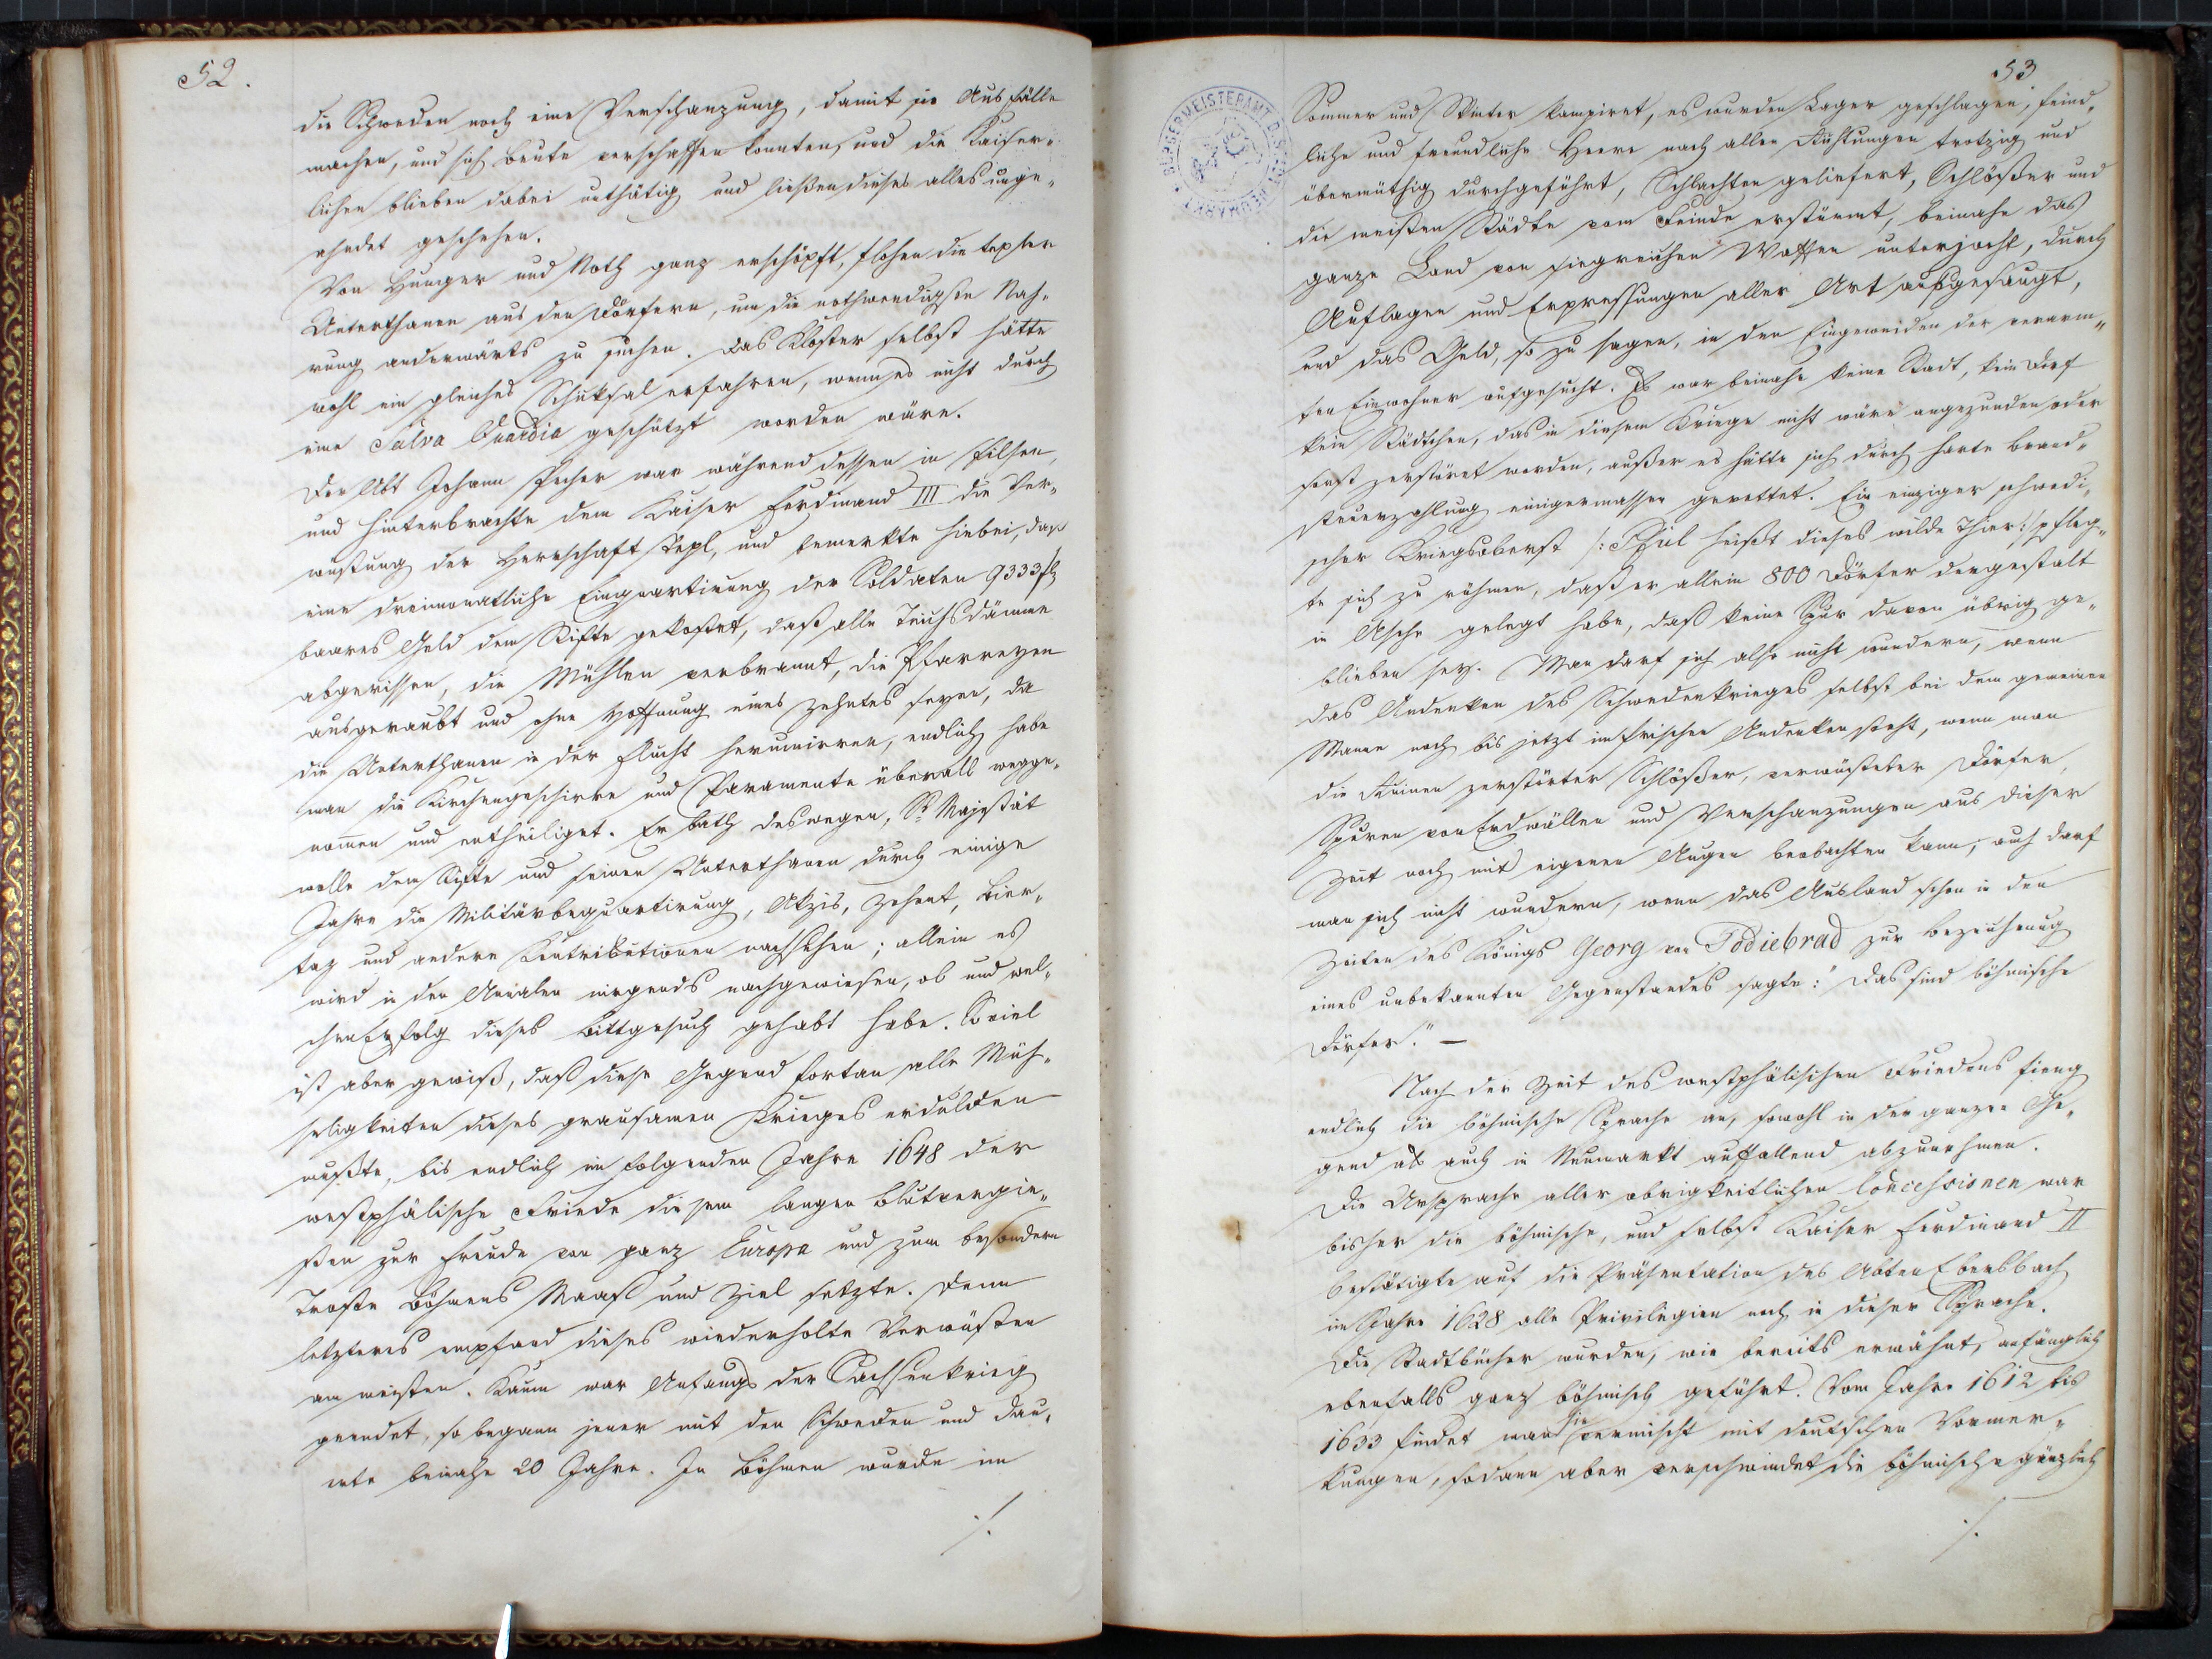 52.
die Schweden noch eine Verschanzung, damit sie Ausfälle
machen, und sich Beute verschaffen konnten, und die Kaiser-
lichen blieben dabei unthätig und ließen dieses alles unge-
ahndet geschehen.
Von Hunger und Noth ganz erschöpft, flohen die tepler
Unterthanen aus den Dörfern, um die nothwendigste Nah-
rung anderwärts zu suchen. Das Kloster selbst hätte
wohl ein gleiches Schuksal erfahren, wenn es nicht durch
eine Salva Guardia geschützt worden wäre.
Der Abt Johann Pecher war während dessen in Pilsen,
und hinterbrachte dem Kaiser Ferdinand III die Ver-
wüstung der Herrschaft Tepl, und bemerkte hiebei, daß
eine dreimonatliche Einquartirung der Soldaten 9333 fl
baares Geld dem Stifte gekostet, daß alle Teichsdämme
abgerissen, die Mühlen verbrannt, die Pfarreyen
ausgeraubt und ohne Hoffnung eines Zehntes seyen, da
die Unterthanen in der Flucht herumirren, endlich habe
man die Kirchengeschirre und Paramente überall wegge-
nomen und entheiliget. Er bath deswegen, Sr Majestät
wolle dem Stifte und seinen Unterthanen durch einige
Jahre die Militärbequartirung, Akzis, Zehent, Bier-
taz und andere Kontributionen nachsehen; allein es
wird in den Annalen nirgends nachgewiesen, ob und wel-
chen Erfolg dieses Bittgesuch gehabt habe. Soviel
ist aber gewiß, daß diese Gegend fortan alle Müh-
seligkeiten dieses grausamen Krieges erdulden
mußte, bis endlich im folgenden Jahre 1648 der
westphälische Friede diesem langen Blutvergie-
ßen zur Freude von ganz Europa und zum besondern
Troste Böhmens Maaß und Ziel setzte. Denn
letzteres empfand dieses wiederholte Verwüsten
am meisten. Kaum war Anfangs der Sachsenkrieg
geendet, so begann jener mit den Schweden und dau-
erte beinahe 20 Jahre. In Böhmen wurde im
./.
53
BÜRGERMEISTERAMT D. STADT NEUMARKT
Sommer und Winter kampiret, es wurden Lager geschlagen, feind-
liche und freundliche Heere nach allen Richtungen trotzig und
übermüthig durchgeführt, Schlachten geliefert, Schlößer und
die meisten Städte vom Feinde erstürmt, beinahe das
ganze Land von siegreichen Waffen unterjocht, durch
Auflagen und Erpressungen aller Art ausgesaugt,
und das Geld, so zu sagen, in den Eingeweiden der verarm-
ten Einwohner aufgesucht. Es war beinahe keine Stadt, kein Dorf
kein Städtchen, das in diesem Kriege nicht wäre angezunden oder
sonst zerstöret worden, außer es hätte sich durch harte Brand-
steuerzahlung einigermassen gerettet. Ein einziger schwedi-
scher Kriegsoberst /: Pful heißt dieses wilde Thier :/ pfleg-
te sich zu rühmen, daß er allein 800 Dörfer dergestalt
in Asche gelegt habe, daß keine Spur davon übrig ge-
blieben sey. Man darf sich also nicht wundern, wenn
das Andenken des Schwedenkrieges selbst bei dem gemeinen
Manne noch bis jetzt im frischen Andenken steht, wenn man
die Ruinen zerstörter Schlößer, verwüsteter Dörfer,
Spuren von Erdwällen und Verschanzungen aus dieser
Zeit noch mit eigenen Augen beobachten kann; auch darf
man sich nicht wundern, wenn das Ausland schon in den
Zeiten des Königs Georg von Podiebrad zur Bezeichnung
eines unbekannten Gegenstandes sagte: "Das sind böhmische
Dörfer." —
Nach der Zeit des westphälischen Friedens fieng
endlich die böhmische Sprache an, sowohl in der ganzen Ge-
gend als auch in Neumarkt auffallend abzunehmen.
Die Ursprache aller obrigkeitlichen Concessionen war
bisher die böhmische, und selbst Kaiser Ferdinand II
bestätigte auf die Präsentation des Abten Ebersbach
im Jahre 1628 alle Privilegien noch in dieser Sprache.
Die Stadtbücher wurden, wie bereits erwähnt, anfänglich
ebenfalls ganz böhmisch geführt. Vom Jahre 1612 bis
1633 findet man sie vermischt mit deutschen Vormer-
kungen, sodann aber verschwindet die böhmische gänzlich
./.